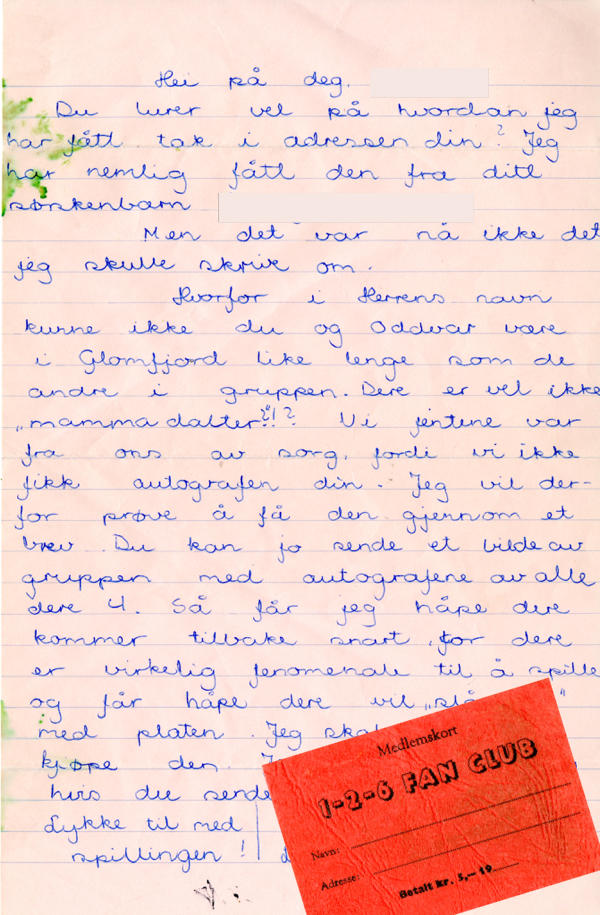 Hei på deg.
Du lurer vel på hvordan jeg
har fått tak i adressen din? Jeg
har nemlig fått den fra ditt
søskenbarn
Men det var nå ikke det
jeg skulle skrive om.
Hvorfor i Herrens navn
kunne ikke du og Oddvar være
i Glomfjord like lenge som de
andre i gruppen. Dere er vel ikke
„mammadalter"?!? Vi jentene var
fra oss av sorg, fordi vi ikke
fikk autografen din. Jeg vil der-
for prøve å få den gjennom et
brev. Du kan jo sende et bilde av
gruppen med autografene av alle
dere 4. Så får jeg håpe dere
kommer tilbake snart, for dere
er virkelig fenomenale til å spille
og får håpe dere vil „slå
med platen. Jeg skal
kjøpe den.
hvis du sende
Lykke til med
spillingen!
Medlemskort
1-2-6 FAN CLUB
Navn:
Adresse:
Betalt kr. 5,– 19